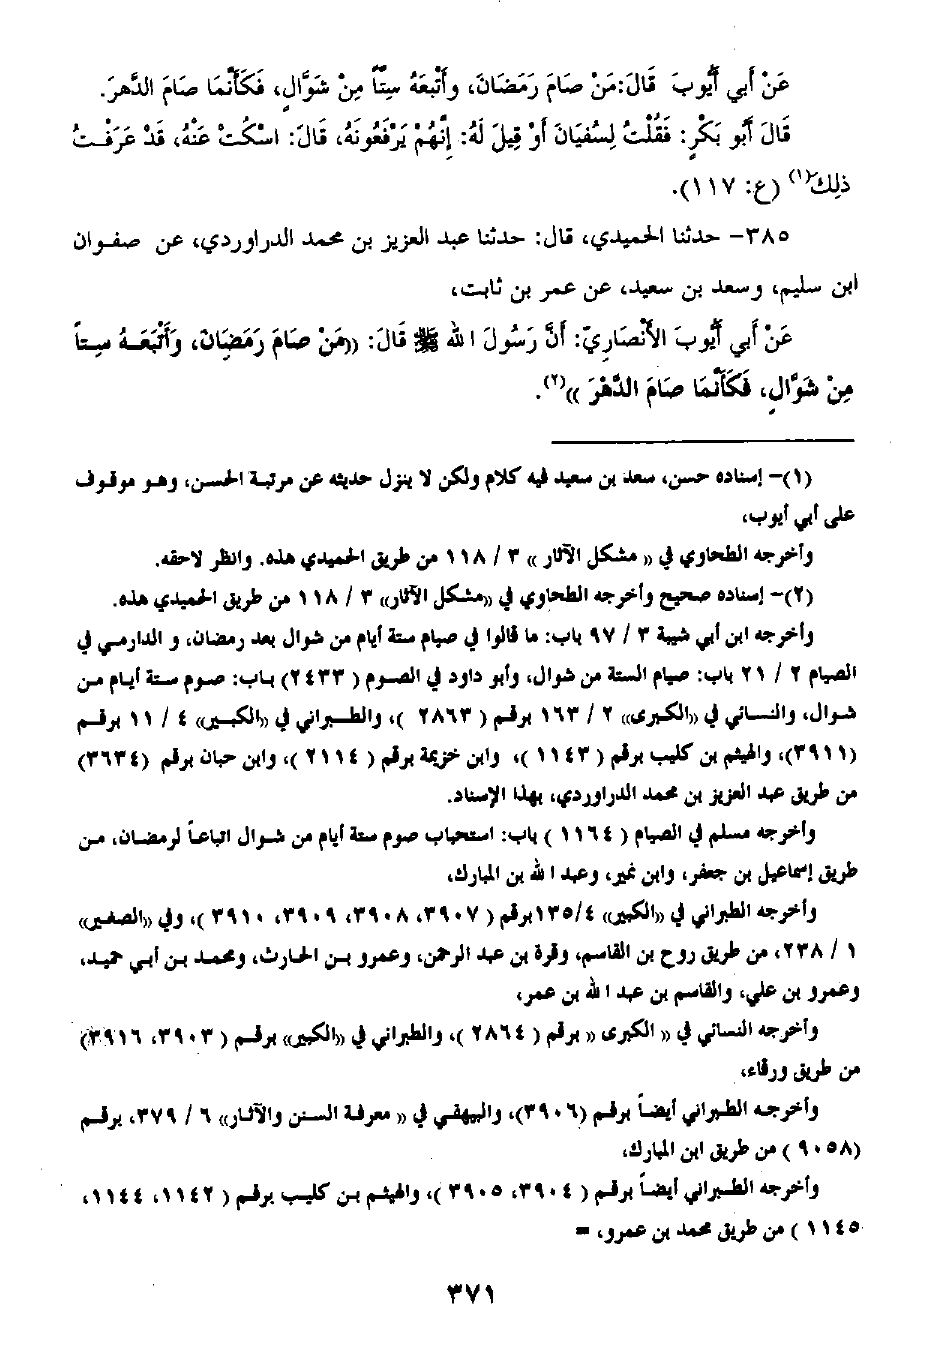 عَنْ أَبي أَيُّوبَ قَالَ:مَنْ صَامَ رَمَضَانَ، وأَتْبَعَهُ سِتّاً مِنْ شَوَّالٍ، فَكَأَنَّمَا صَامَ الدَّهرَ.
قَالَ أَبُو بَكْرٍ: فَقُلْتُ لِسُفيَانَ أَوْ قِيلَ لَهُ: إِنَّهُمْ يَرْفَعُونَهُ، قَالَ: اسْكُتْ عَنْهُ، قَدْ عَرَفْتُ
ذلِكَ(١) (ع: ١١٧).
٣٨٥– حدثنا الحميدي، قال: حدثنا عبد العزيز بن محمد الدراوردي، عن صفوان
ابن سليم، وسعد بن سعيد، عن عمر بن ثابت،
عَنْ أَبي أَيُّوبَ الأَنْصَارِيِّ: أَنَّ رَسُولَ الله ﷺ قَالَ: ((مَنْ صَامَ رَمَضَانَ، وَأَتْبَعَهُ سِتاً
مِنْ شَوَّالٍ، فَكَأَنَّمَا صَامَ الدَّهْرَ ))(٢).
(١)– إسناده حسن، سعد بن سعيد فيه كلام ولكن لا ينزل حديثه عن مرتبة الحسن، وهو موقوف
على أبي أيوب،
وأخرجه الطحاوي في (( مشكل الآثار )) ٣ / ١١٨ من طريق الحميدي هذه. وانظر لاحقه.
(٢)– إسناده صحيح وأخرجه الطحاوي في ((مشكل الآثار)) ٣ / ١١٨ من طريق الحميدي هذه.
وأخرجه ابن أبي شيبة ٣ / ٩٧ باب: ما قالوا في صيام ستة أيام من شوال بعد رمضان، و الدارمي في
الصيام ٢ / ٢١ باب: صيام الستة من شوال، وأبو داود في الصوم ( ٢٤٣٣) باب: صوم ستة أيام من
شوال، والنسائي في ((الكبرى)) ٢ / ١٦٣ برقم ( ٢٨٦٣ )، والطبراني في ((الكبير)) ٤ / ١١ برقم
(٣٩١١)، والهيثم بن كليب برقم ( ١١٤٣ )، وابن خزيمة برقم ( ٢١١٤ )، وابن حبان برقم (٣٦٣٤)
من طريق عبد العزيز بن محمد الدراوردي، بهذا الإسناد.
وأخرجه مسلم في الصيام ( ١١٦٤ ) باب: استحباب صوم ستة أيام من شوال اتباعاً لرمضان، من
طريق إسماعيل بن جعفر، وابن نمير، وعبد الله بن المبارك،
وأخرجه الطبراني في ((الكبير)) ١٣٥/٤برقم ( ٣٩٠٧، ٣٩٠٨، ٣٩٠٩، ٣٩١٠ )، وفي ((الصغير))
١ / ٢٣٨، من طريق روح بن القاسم، وقرة بن عبد الرحمن، وعمرو بن الحارث، ومحمد بن أبي حميد،
وعمرو بن علي، والقاسم بن عبد الله بن عمر،
وأخرجه النسائي في (( الكبرى (( برقم ( ٢٨٦٤ )، والطبراني في ((الكبير)) برقم ( ٣٩٠٣، ٣٩١٦)
من طريق ورقاء،
وأخرجه الطبراني أيضاً برقم (٣٩٠٦)، والبيهقي في (( معرفة السنن والآثار)) ٦ / ٣٧٩، برقم
(٩٠٥٨ ) من طريق ابن المبارك،
وأخرجه الطبراني أيضاً برقم ( ٣٩٠٤، ٣٩٠٥ )، والهيثم بن كليب برقم ( ١١٤٢، ١١٤٤،
١١٤٥ ) من طريق محمد بن عمرو، =
٣٧١